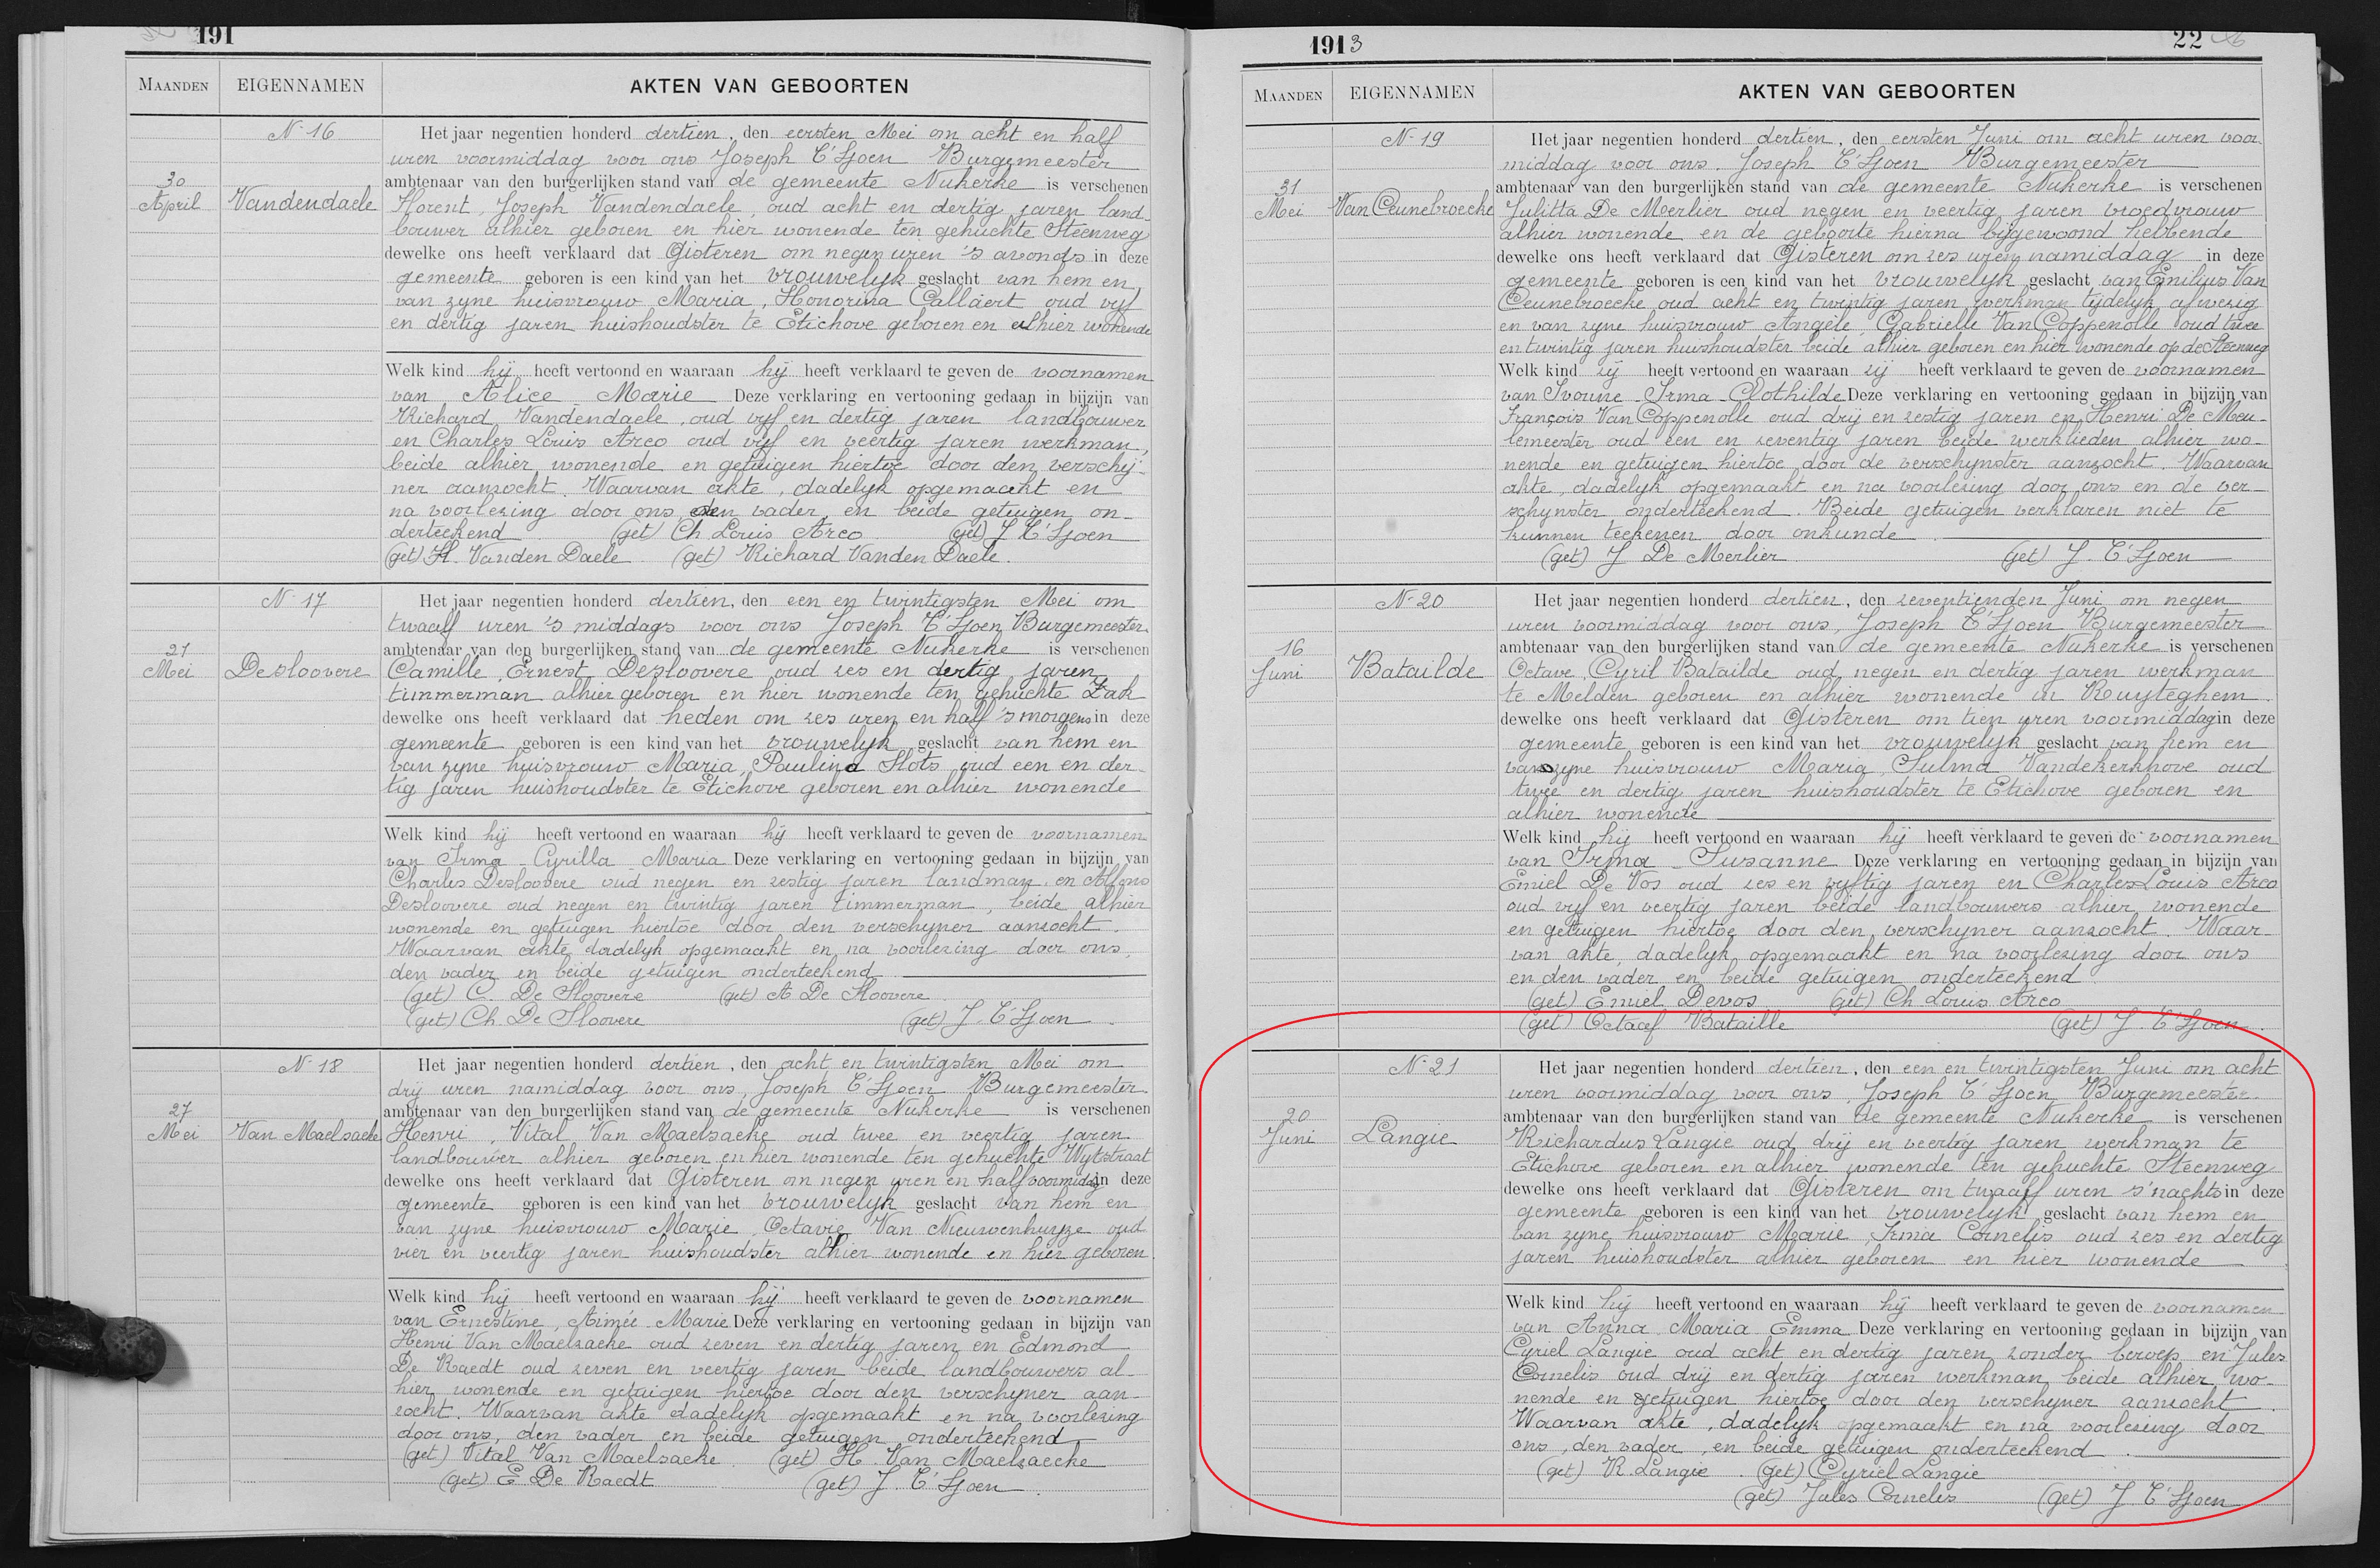 191
MAANDEN EIGENNAMEN AKTEN VAN GEBOORTEN
N-16 Het jaar negentien honderd dertien, den eersten Mei om acht en half
uren voormiddag voor ons Joseph T'Sjoen Burgemeester
30 April Vandendaele
ambtenaar van den burgerlijken stand van de gemeente Nukerke is verschenen
Florent, Joseph Vandendaele, oud acht en dertig jaren land-
bouwer alhier geboren en hier wonende ten gehuchte Steenweg
dewelke ons heeft verklaard dat Gisteren om negen uren 's avonds in deze
gemeente geboren is een kind van het vrouwelyk geslacht van hem en
van zyne huisvrouw Maria, Honorina Callaert oud vyf
en dertig jaren huishoudster te Etichove geboren en alhier wonende
Welk kind hÿ heeft vertoond en waaraan hÿ heeft verklaard te geven de voornamen
van Alice - Marie Deze verklaring en vertooning gedaan in bijzijn van
Richard Vandendaele, oud vyf en dertig jaren landbouwer
en Charles Louis Arco oud vyf en veertig jaren werkman,
beide alhier wonende en getuigen hiertoe door den verschij-
ner aanzocht. Waarvan akte, dadelyk opgemaakt en
na voorlezing door ons den vader en beide getuigen on-
derteekend (get) Ch Louis Arco (get) J T'Sjoen
(get) Fl. Vanden Daele (get) Richard Vanden Daele.
N-17 Het jaar negentien honderd dertien, den een en twintigsten Mei om
twaalf uren 's middags voor ons Joseph T'Sjoen Burgemeester
21 Mei Desloovere
ambtenaar van den burgerlijken stand van de gemeente Nukerke is verschenen
Camille, Ernest Desloovere oud zes en dertig jaren
timmerman alhier geboren en hier wonende ten gehuchte Zak
dewelke ons heeft verklaard dat heden om zes uren en half 's morgens in deze
gemeente geboren is een kind van het vrouwelyk geslacht van hem en
van zyne huisvrouw Maria, Paulina Slots oud een en der-
tig jaren huishoudster te Etichove geboren en alhier wonende
Welk kind hÿ heeft vertoond en waaraan hÿ heeft verklaard te geven de voornamen
van Irma - Cyrilla - Maria Deze verklaring en vertooning gedaan in bijzijn van
Charles Desloovere oud negen en zestig jaren landman en Alfons
Desloovere oud negen en twintig jaren timmerman, beide alhier
wonende en getuigen hiertoe door den verschyner aanzocht.
Waarvan akte dadelyk opgemaakt en na voorlezing door ons,
den vader en beide getuigen onderteekend
(get) C. De Sloovere (get) A De Sloovere
(get) Ch. De Sloovere (get) J. T'Sjoen
N-18 Het jaar negentien honderd dertien, den acht en twintigsten Mei om
drij uren namiddag voor ons Joseph T'Sjoen Burgemeester
27 Mei Van Maelsaeke
ambtenaar van den burgerlijken stand van de gemeente Nukerke is verschenen
Henri, Vital Van Maelsaeke oud twee en veertig jaren
landbouwer alhier geboren en hier wonende ten gehuchte Wytstraat
dewelke ons heeft verklaard dat Gisteren om negen uren en half voormiddag in deze
gemeente geboren is een kind van het vrouwelyk geslacht van hem en
van zyne huisvrouw Marie, Octavie Van Nieuwenhuyze oud
vier en veertig jaren huishoudster alhier wonende en hier geboren.
Welk kind hÿ heeft vertoond en waaraan hÿ heeft verklaard te geven de voornamen
van Ernestine, Aimée - Marie Deze verklaring en vertooning gedaan in bijzijn van
Henri Van Maelsaeke oud zeven en dertig jaren en Edmond
De Raedt oud zeven en veertig jaren beide landbouwers al-
hier wonende en getuigen hiertoe door den verschyner aan-
zocht. Waarvan akte dadelyk opgemaakt en na voorlezing
door ons, den vader en beide getuigen onderteekend
(get) Vital Van Maelsaeke (get) H. Van Maelsaecke
(get) E De Raedt (get) J. T'Sjoen
1913 22
MAANDEN EIGENNAMEN AKTEN VAN GEBOORTEN
N-19 Het jaar negentien honderd dertien, den eersten Juni om acht uren voor
middag voor ons. Joseph T'Sjoen Burgemeester
31 Mei Van Ceunebroecke
ambtenaar van den burgerlijken stand van de gemeente Nukerke is verschenen
Julitta De Merlier oud negen en veertig jaren vroedvrouw
alhier wonende en de geboorte hierna bijgewoond hebbende
dewelke ons heeft verklaard dat Gisteren om zes uren namiddag in deze
gemeente geboren is een kind van het vrouwelyk geslacht van Emilius Van
Ceunebroecke oud acht en twintig jaren werkman tydelyk afwezig
en van zyne huisvrouw Angèle, Gabrielle Van Coppenolle oud twee
en twintig jaren huishoudster beide alhier geboren en hier wonende op de Steenweg
Welk kind zÿ heeft vertoond en waaraan zÿ heeft verklaard te geven de voornamen
van Ivonne - Irma - Clothilde Deze verklaring en vertooning gedaan in bijzijn van
François Van Coppenolle oud drij en zestig jaren en Henri De Meu-
lemeester oud een en zeventig jaren beide werklieden alhier wo-
nende en getuigen hiertoe door de verschynster aanzocht. Waarvan
akte, dadelyk opgemaakt en na voorlezing door ons en de ver-
schynster onderteekend. Beide getuigen verklaren niet te
kunnen teekenen door onkunde
(get) J De Merlier (get) J. T'Sjoen
N-20 Het jaar negentien honderd dertien, den zeventienden Juni om negen
uren voormiddag voor ons, Joseph T'Sjoen Burgemeester
16 Juni Batailde
ambtenaar van den burgerlijken stand van de gemeente Nukerke is verschenen
Octave, Cyril Batailde oud negen en dertig jaren werkman
te Melden geboren en alhier wonende in Ruyteghem.
dewelke ons heeft verklaard dat Gisteren om tien uren voormiddag in deze
gemeente geboren is een kind van het vrouwelyk geslacht van hem en
van zyne huisvrouw Maria, Sulma Vandekerkhove oud
twee en dertig jaren huishoudster te Etichove geboren en
alhier wonende
Welk kind hÿ heeft vertoond en waaraan hÿ heeft verklaard te geven de voornamen
van Irma - Susanne Deze verklaring en vertooning gedaan in bijzijn van
Emiel De Vos oud zes en vyftig jaren en Charles Louis Arco
oud vyf en veertig jaren beide landbouwers alhier wonende
en getuigen hiertoe door den verschyner aanzocht. Waar-
van akte, dadelyk opgemaakt en na voorlezing door ons
en den vader en beide getuigen onderteekend
(get) Emiel Devos (get) Ch. Louis Arco
(get) Octaaf Bataille (get) J. T'Sjoen.
N-21 Het jaar negentien honderd dertien, den een en twintigsten Juni om acht
uren voormiddag voor ons, Joseph T'Sjoen Burgemeester
20 Juni Langie
ambtenaar van den burgerlijken stand van de gemeente Nukerke is verschenen
Richardus Langie oud drij en veertig jaren werkman te
Etichove geboren en alhier wonende ten gehuchte Steenweg
dewelke ons heeft verklaard dat Gisteren om twaalf uren s'nachts in deze
gemeente geboren is een kind van het vrouwelyk geslacht van hem en
van zyne huisvrouw Marie, Irma Cornelis oud zes en dertig
jaren huishoudster alhier geboren en hier wonende
Welk kind hÿ heeft vertoond en waaraan hÿ heeft verklaard te geven de voornamen
van Anna Maria Emma Deze verklaring en vertooning gedaan in bijzijn van
Cyriel Langie oud acht en dertig jaren zonder beroep en Jules
Cornelis oud drij en dertig jaren werkman beide alhier wo-
nende en getuigen hiertoe door den verschyner aanzocht.
Waarvan akte, dadelyk opgemaakt en na voorlezing door
ons, den vader, en beide getuigen onderteekend
(get) R. Langie (get) Cyriel Langie
(get) Jules Cornelis (get) J. T'Sjoen